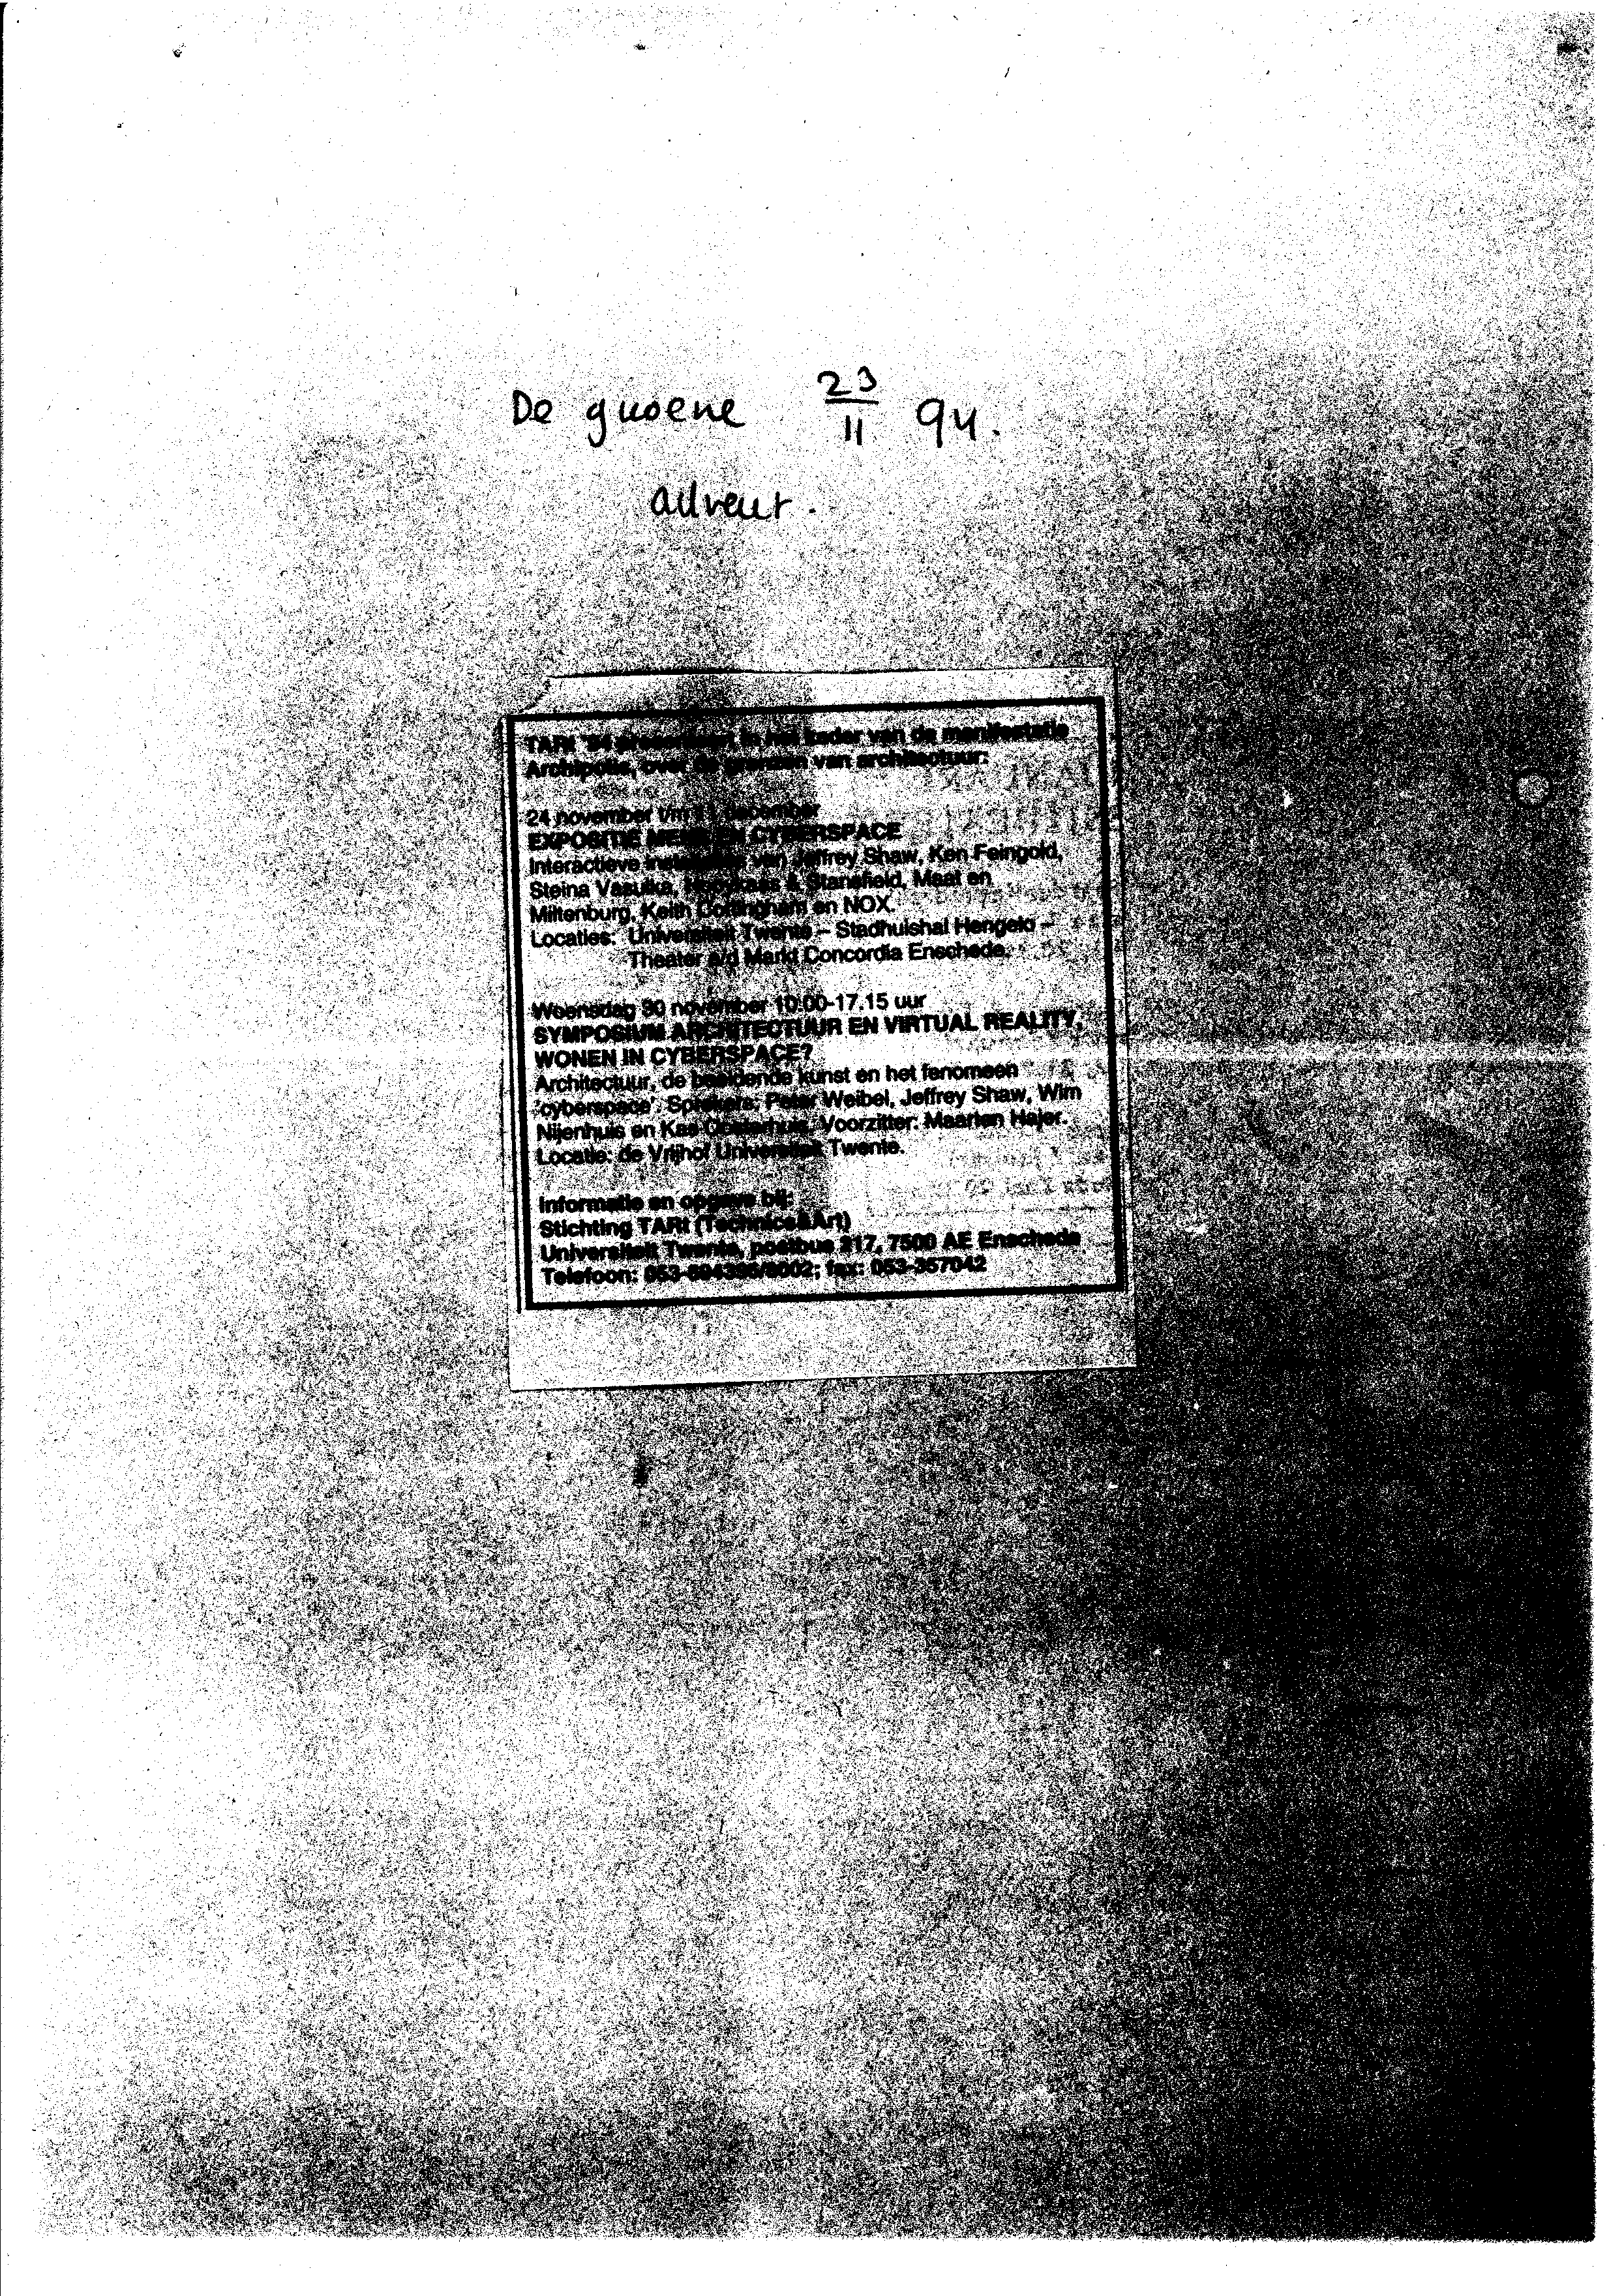 De groene 23/11 94.
advert.
TARt '94 presenteert in het kader van de manifestatie
Archipolis, over de grenzen van architectuur:
24 november t/m 11 december
EXPOSITIE MENS EN CYBERSPACE
Interactieve installaties van Jeffrey Shaw, Ken Feingold,
Steina Vasulka, Hooykaas & Stansfield, Maat en
Miltenburg, Keith Cottingham en NOX.
Locaties: Universiteit Twente – Stadhuishal Hengelo –
Theater a/d Markt Concordia Enschede.
Woensdag 30 november 10.00-17.15 uur
SYMPOSIUM ARCHITECTUUR EN VIRTUAL REALITY,
WONEN IN CYBERSPACE?
Architectuur, de beeldende kunst en het fenomeen
'cyberspace'. Sprekers: Peter Weibel, Jeffrey Shaw, Wim
Nijenhuis en Kas Oosterhuis. Voorzitter: Maarten Hajer.
Locatie: de Vrijhof Universiteit Twente.
Informatie en opgave bij:
Stichting TARt (Technics&Art)
Universiteit Twente, postbus 217, 7500 AE Enschede
Telefoon: fax: 053-357042